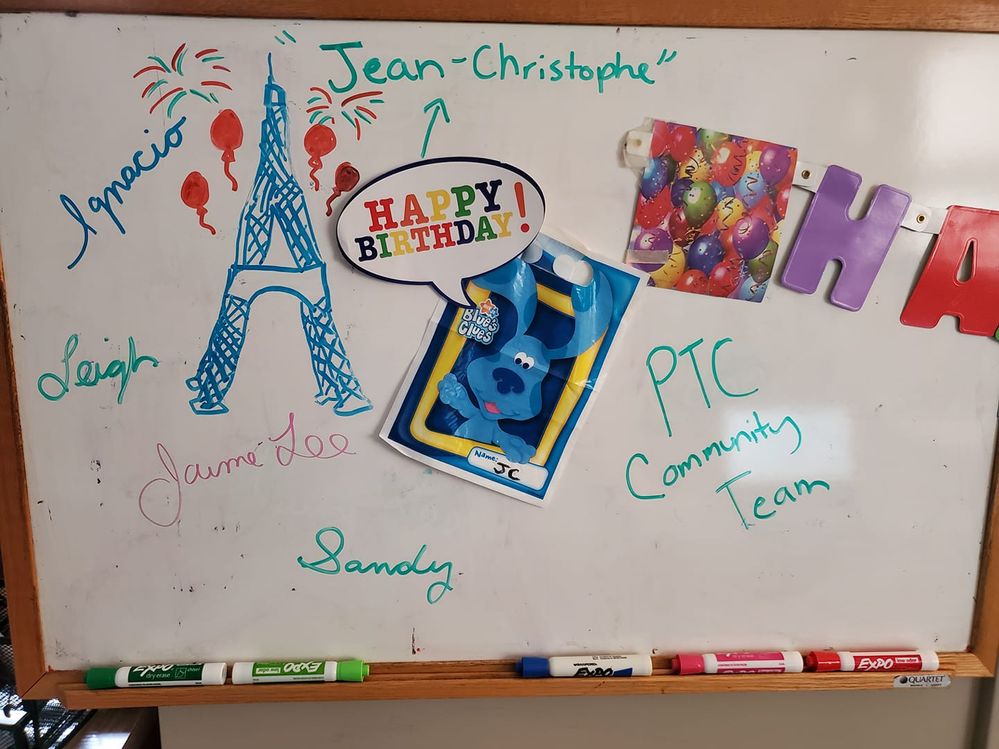 "Jean-Christophe"
Ignacio
HAPPY
BIRTHDAY!
HA
Blue's
Clues
Leigh
PTC
Community
Team
Jaime Lee
Name:
JC
Sandy
EXPO
dry erase
EXPO
EXPO
EXPO
QUARTET